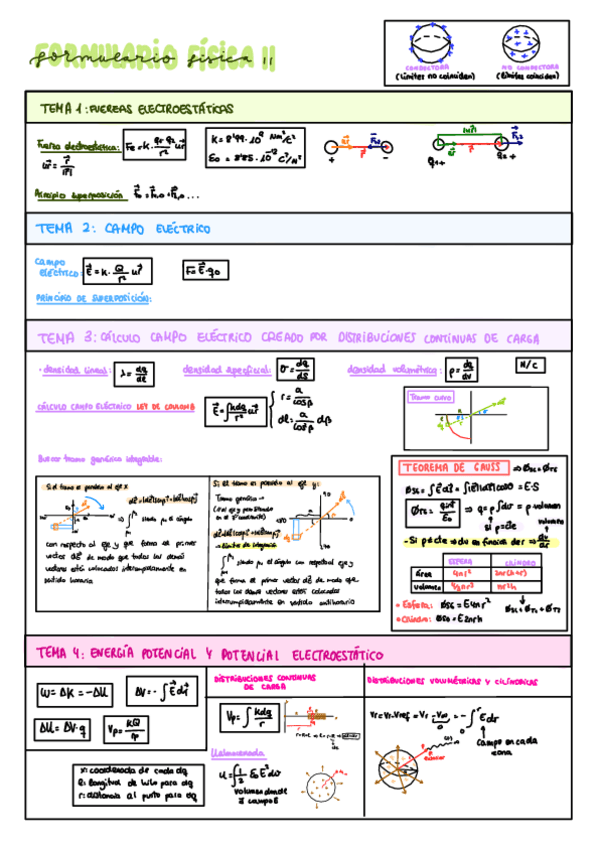 FORMULARIO FÍSICA II
formulario física II
CONDUCTORA
(Límites no coinciden)
NO CONDUCTORA
(Límites coinciden)
TEMA 1: FUERZAS ELECTROESTÁTICAS
Fuerza electroestática:
Fe = K · q1 · q2 / r² ur
K = 8'99 · 10⁹ Nm²/C²
ε0 = 8'85 · 10⁻¹² C²/N²
ur = r / |r|
Principio superposición
TEMA 2: CAMPO ELÉCTRICO
CAMPO ELÉCTRICO:
E = K · Q / r² ur
F = E · q0
PRINCIPIO DE SUPERPOSICIÓN:
TEMA 3: CÁLCULO CAMPO ELÉCTRICO CREADO POR DISTRIBUCIONES CONTINUAS DE CARGA
· densidad lineal:
λ = dq / dl
densidad superficial:
σ = dq / dS
densidad volumétrica:
ρ = dq / dv
N/C
CÁLCULO CAMPO ELÉCTRICO LEY DE COULOMB
E = ∫ kdq / r² ur
r = a / cosβ
dl = a / cosβ dβ
Tramo curvo
Buscar tramo genérico integrable:
Si el tramo es paralelo al eje x
con respecto al eje y que forma el primer
vector dE de modo que todos los demás
vectores estén colocados interrumpidamente en
sentido horario
Si el tramo es paralelo al eje y:
Tramo genérico →
→ Límites de integración
que forma el primer vector dE de modo que
todos los demás vectores estés colocados
interrumpidamente en sentido antihorario
TEOREMA DE GAUSS
si ρ = cte
- Si ρ ≠ cte → dv en función de r ⇒ dv / dr
ESFERA
CILINDRO
área
4πr²
volumen
4/3πr³
πr²h
• Esfera: ØSG = E4πr²
• Cilindro: ØSG = E2πrh
TEMA 4: ENERGÍA POTENCIAL Y POTENCIAL ELECTROESTÁTICO
W = ΔK = -ΔU
ΔV = - ∫ E dl
ΔU = ΔV · q
Vp = KQ / rp
x: coordenada de cada dq
l: longitud de hilo para dq
r: distancia al punto para dq
DISTRIBUCIONES CONTINUAS
DE CARGA
Vp = ∫ kdq / r
U almacenada
U = ∫ 1/2 ε0 E² dv
volumen donde
∃ campo E
DISTRIBUCIONES VOLUMÉTRICAS Y CILÍNDRICAS
Vr = Vr - Vref = Vr - V∞ = - ∫ E dr
campo en cada
zona
exterior